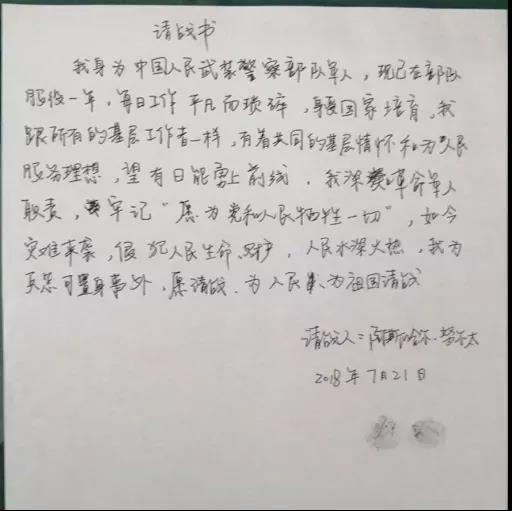 请战书
我身为中国人民武装警察部队军人，现已在部队
服役一年，每日工作平凡而琐碎，身受国家培育，我
跟所有的基层工作者一样，有着共同的基层情怀和为人民
服务理想，望有日能勇上前线，我深 革命军人
职责，牢记“愿为党和人民牺牲一切”，如今
灾难来袭，侵犯人民生命、财产，人民水深火热，我为
兵怎可置身事外，愿请战、为人民、为祖国请战
请战人：阿斯哈尔·努尔太
2018年7月21日